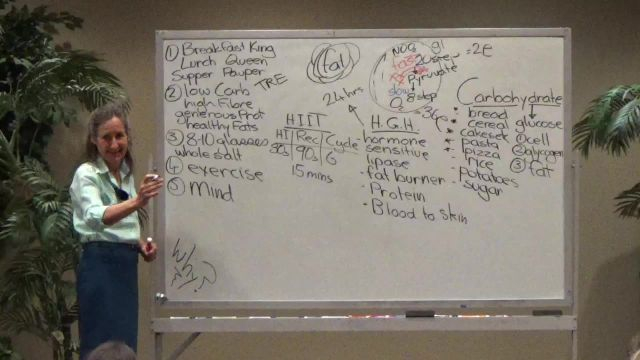 ① Breakfast King
Lunch Queen
Supper Pauper
TRE
② low Carb
high Fibre
generous Prot
healthy Fats
③ 8-10 glasses
whole salt
④ exercise
⑤ Mind
Why?
fat
HIIT
HI Rec Cycle
30s 90s 6
15 mins
24 hrs
gl
= 2E
Pyruvate
slow 8 step
36e
H.G.H.
hormone
sensitive
lipase
- fat burner
- Protein
- Blood to skin
Carbohydrate
bread
cereal
cakes
pasta
pizza
rice
potatoes
sugar
glucose
① cell
② glycogen
③ fat